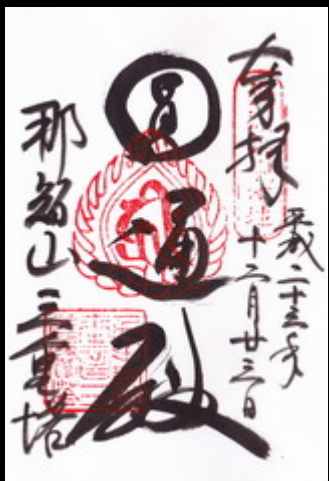 奉拝
平成二十三年
十二月廿三日
圓通殿
那智山三重塔